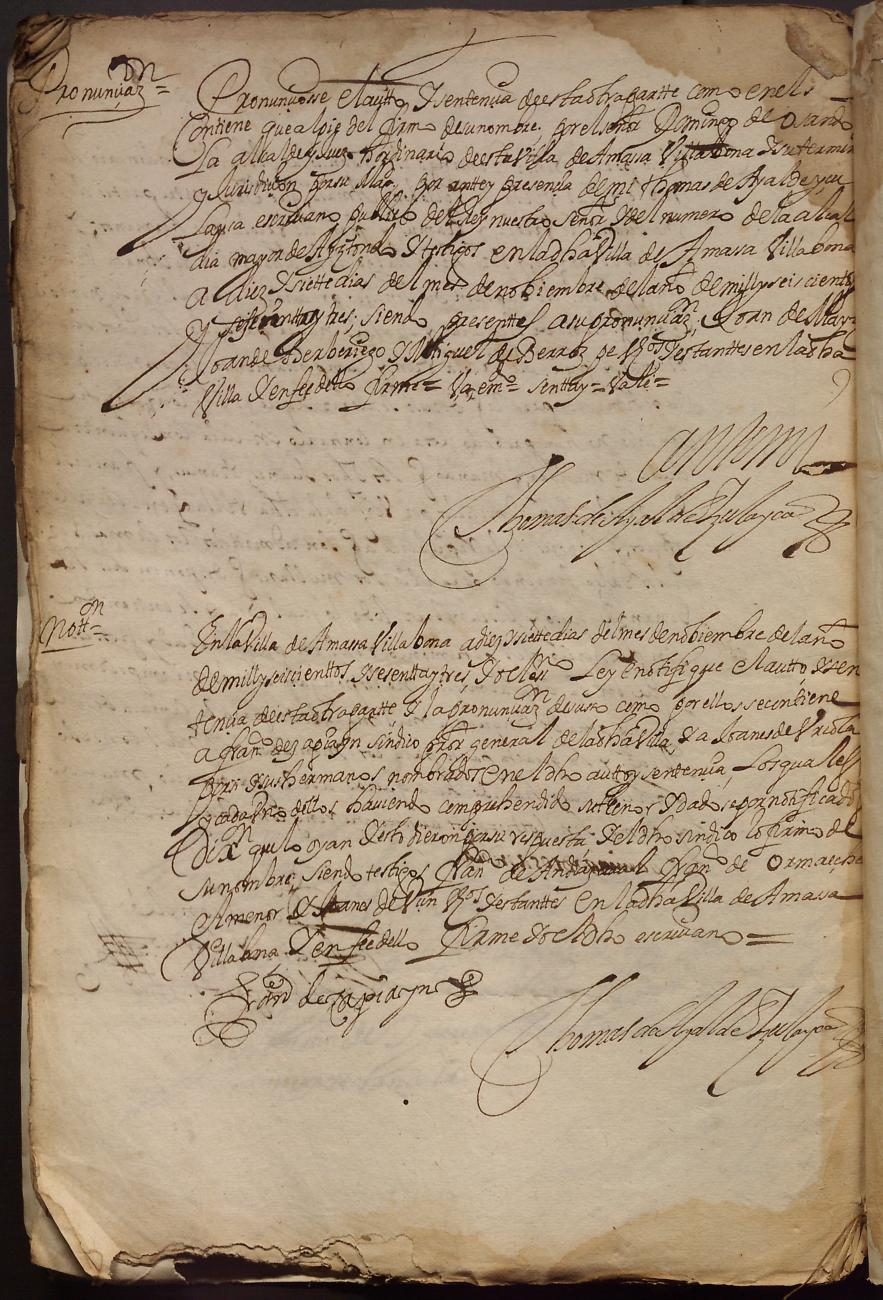 Pronunciazon=
Pronunciosse el autto y sentencia de esta otra partte como en el se
contiene que al pie del firmo de su nombre, por el señor Domingo de
La alcalde y Juez hordinario de esta Villa de Amasa Villabona y su termino
y Jurisdicion por su Magd, por ante y presencia de mi Thomas de Ayalde y çu
Layca escrivano publico del Rey nuestro señor y del numero de la alcal
dia mayor de Ayztondo y testigos en la dha Villa de Amasa Villabona
a diez y siette dias del mes de nobiembre del año de mill y seis cientos
y sesentta y tres; siendo presenttes a su pronunciazon, Joan de
Joan de Berberiego y Miguel de Berroz pe Vos y estanttes en la dha
Villa y en fee dello firme= Va emdo sentta y= Vale=
ante mi
Thomas de Ayalde Zulayca
Nottn=
En la Villa de Amassa Villabona a diez y siette dias del mes de nobiembre del año
de mill y seiscienttos y sesenta y tres, Yo el sno Ley e notifique el autto, y sen
tencia de esta otra partte y la pronunciazon de suso como por ellos se contiene
a Fran de Zapiayn sindico pror general de la dha Villa, y a Joanes de Urreta
por si y sus hermanos nombrados en el dho auto y sentencia, Los quales
y cada Uno dellos haviendo comprehendido su tenor y dado se por notificados
Dixn que lo oyan y esto dieron por su respuesta y el dho sindico lo firmo de
su nombre; siendo testigos Fran de Fran de Ormaechea
el menor y Joanes de Vos y estanttes en la dha Villa de Amassa
Villabona y en fee dello firme Yo el dho escrivano=
Fran de Zapiayn
Thomas de Ayalde Zulayca